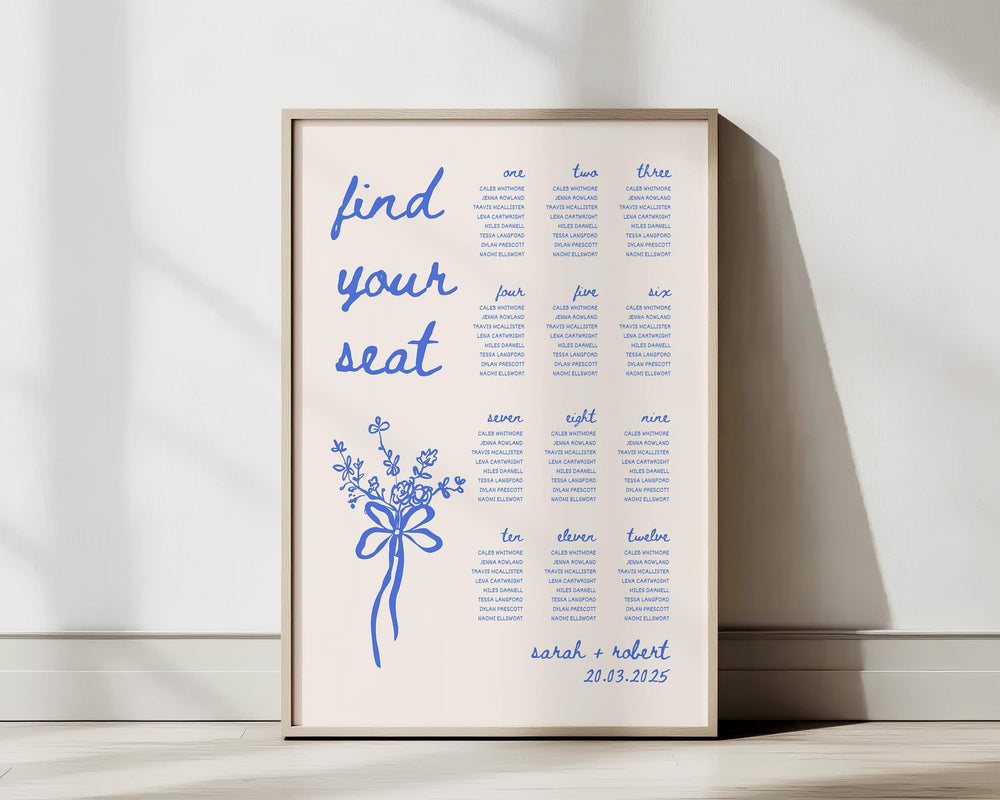 find
your
seat
one
CALEB WHITMORE
JENNA ROWLAND
TRAVIS MCALLISTER
LENA CARTWRIGHT
MILES DARNELL
TESSA LANGFORD
DYLAN PRESCOTT
NAOMI ELLSWORT
two
CALEB WHITMORE
JENNA ROWLAND
TRAVIS MCALLISTER
LENA CARTWRIGHT
MILES DARNELL
TESSA LANGFORD
DYLAN PRESCOTT
NAOMI ELLSWORT
three
CALEB WHITMORE
JENNA ROWLAND
TRAVIS MCALLISTER
LENA CARTWRIGHT
MILES DARNELL
TESSA LANGFORD
DYLAN PRESCOTT
NAOMI ELLSWORT
four
CALEB WHITMORE
JENNA ROWLAND
TRAVIS MCALLISTER
LENA CARTWRIGHT
MILES DARNELL
TESSA LANGFORD
DYLAN PRESCOTT
NAOMI ELLSWORT
five
CALEB WHITMORE
JENNA ROWLAND
TRAVIS MCALLISTER
LENA CARTWRIGHT
MILES DARNELL
TESSA LANGFORD
DYLAN PRESCOTT
NAOMI ELLSWORT
six
CALEB WHITMORE
JENNA ROWLAND
TRAVIS MCALLISTER
LENA CARTWRIGHT
MILES DARNELL
TESSA LANGFORD
DYLAN PRESCOTT
NAOMI ELLSWORT
seven
CALEB WHITMORE
JENNA ROWLAND
TRAVIS MCALLISTER
LENA CARTWRIGHT
MILES DARNELL
TESSA LANGFORD
DYLAN PRESCOTT
NAOMI ELLSWORT
eight
CALEB WHITMORE
JENNA ROWLAND
TRAVIS MCALLISTER
LENA CARTWRIGHT
MILES DARNELL
TESSA LANGFORD
DYLAN PRESCOTT
NAOMI ELLSWORT
nine
CALEB WHITMORE
JENNA ROWLAND
TRAVIS MCALLISTER
LENA CARTWRIGHT
MILES DARNELL
TESSA LANGFORD
DYLAN PRESCOTT
NAOMI ELLSWORT
ten
CALEB WHITMORE
JENNA ROWLAND
TRAVIS MCALLISTER
LENA CARTWRIGHT
MILES DARNELL
TESSA LANGFORD
DYLAN PRESCOTT
NAOMI ELLSWORT
eleven
CALEB WHITMORE
JENNA ROWLAND
TRAVIS MCALLISTER
LENA CARTWRIGHT
MILES DARNELL
TESSA LANGFORD
DYLAN PRESCOTT
NAOMI ELLSWORT
twelve
CALEB WHITMORE
JENNA ROWLAND
TRAVIS MCALLISTER
LENA CARTWRIGHT
MILES DARNELL
TESSA LANGFORD
DYLAN PRESCOTT
NAOMI ELLSWORT
sarah + robert
20.03.2025